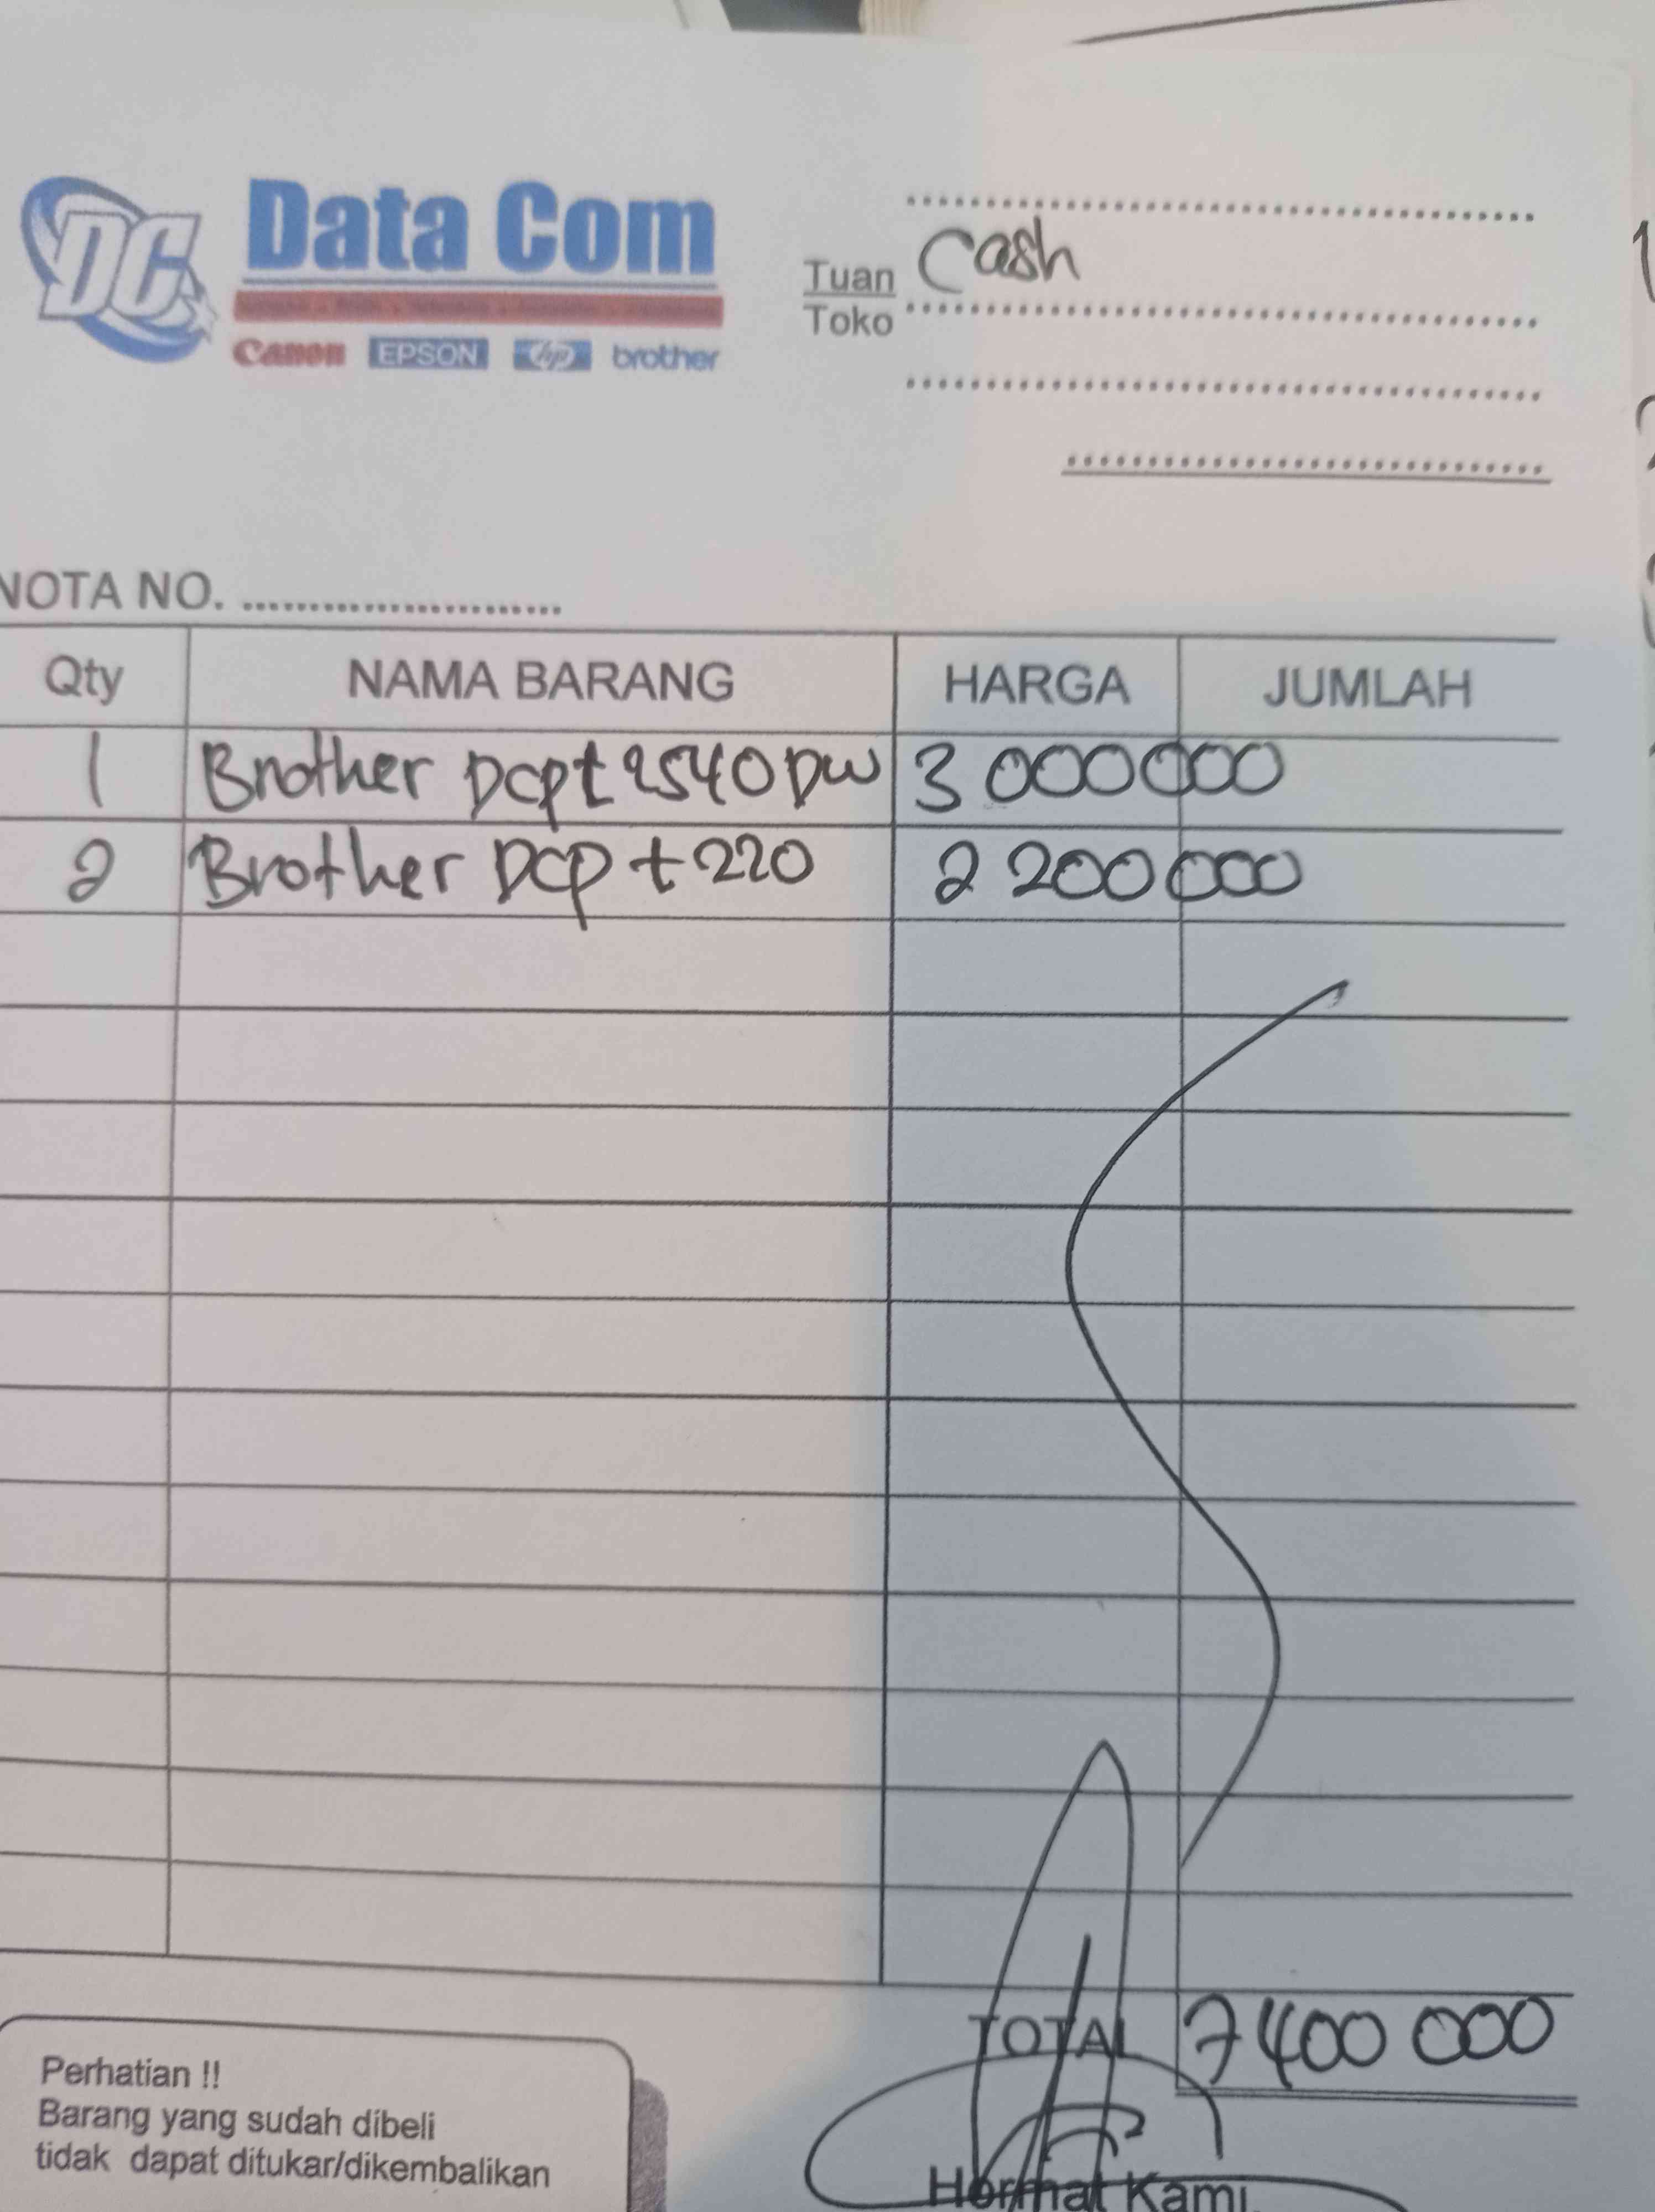 DC Data Com
Canon EPSON hp brother
Tuan Cash
Toko
NOTA NO. ........................
Qty NAMA BARANG HARGA JUMLAH
1 Brother Dcpt 2540 DW 3 000000
2 Brother DCP t220 2 200000
TOTAL 7400 000
Perhatian !!
Barang yang sudah dibeli
tidak dapat ditukar/dikembalikan
Hormat Kami,